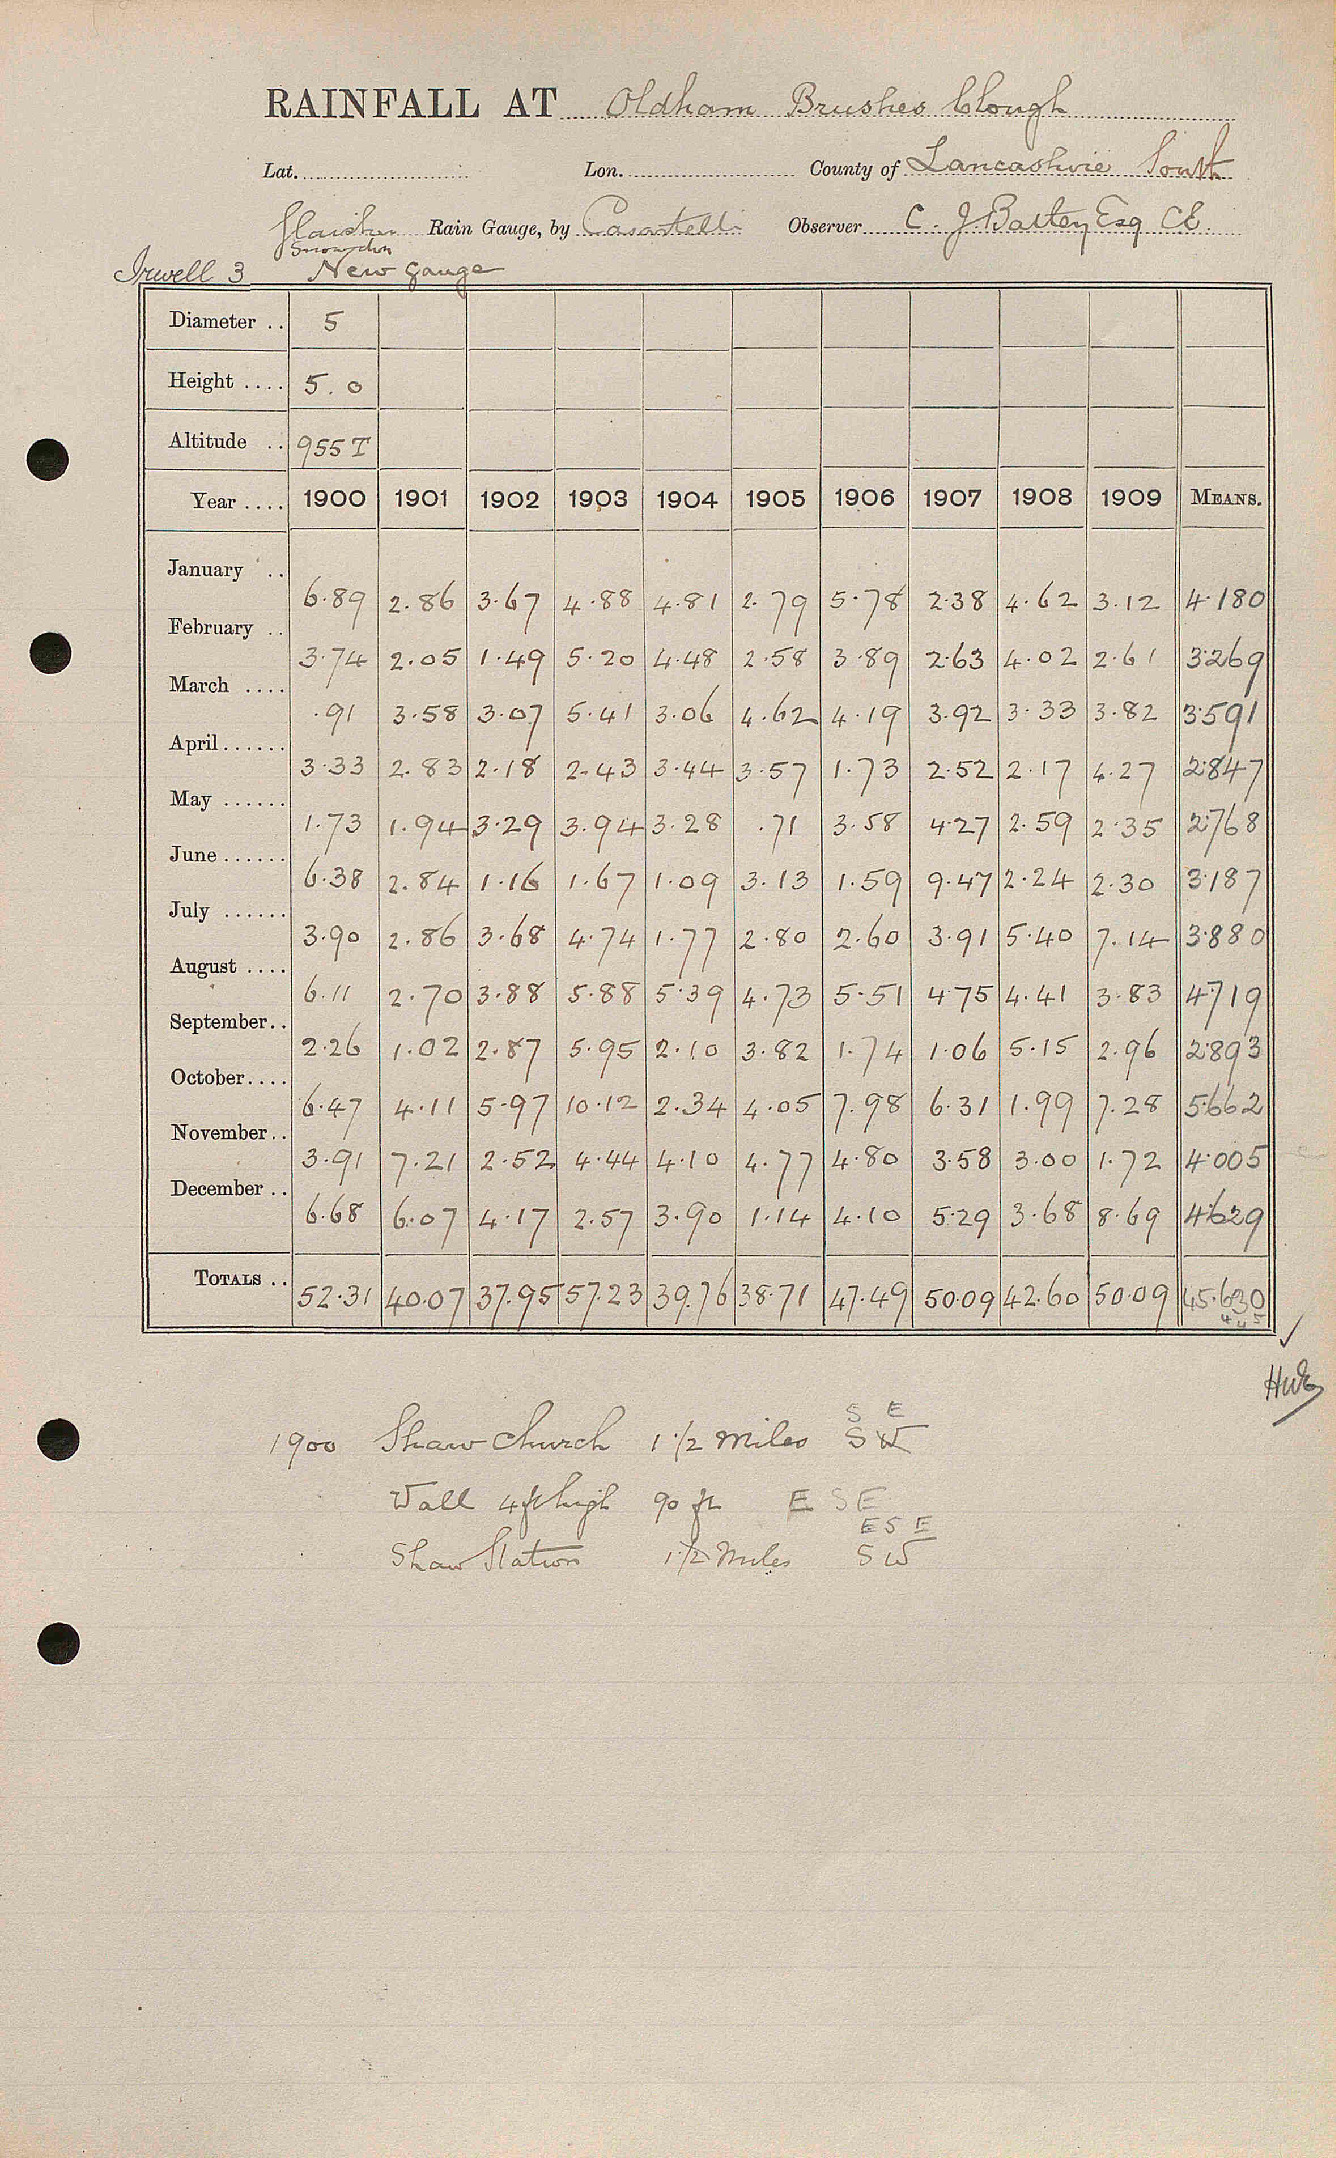 RAINFALL AT Oldham Brushes Clough
Lat. Lon. County of Lancashire South
Glaisher Rain Gauge, by Casartelli Observer C. J. Batley Esq CE.
Snowdon
Irwell 3 New gauge
Diameter .. 5
Height .... 5.0
Altitude .. 955 T
Year .... 1900 1901 1902 1903 1904 1905 1906 1907 1908 1909 MEANS.
January .. 6.89 2.86 3.67 4.88 4.81 2.79 5.78 2.38 4.62 3.12 4.180
February .. 3.74 2.05 1.49 5.20 4.48 2.58 3.89 2.63 4.02 2.61 3.269
March .... .91 3.58 3.07 5.41 3.06 4.62 4.19 3.92 3.33 3.82 3.591
April...... 3.33 2.83 2.18 2.43 3.44 3.57 1.73 2.52 2.17 4.27 2.847
May ...... 1.73 1.94 3.29 3.94 3.28 .71 3.58 4.27 2.59 2.35 2.768
June ...... 6.38 2.84 1.16 1.67 1.09 3.13 1.59 9.47 2.24 2.30 3.187
July ...... 3.90 2.86 3.68 4.74 1.77 2.80 2.60 3.91 5.40 7.14 3.880
August .... 6.11 2.70 3.88 5.88 5.39 4.73 5.51 4.75 4.41 3.83 4.719
September.. 2.26 1.02 2.87 5.95 2.10 3.82 1.74 1.06 5.15 2.96 2.893
October.... 6.47 4.11 5.97 10.12 2.34 4.05 7.98 6.31 1.99 7.28 5.662
November.. 3.91 7.21 2.52 4.44 4.10 4.77 4.80 3.58 3.00 1.72 4.005
December .. 6.68 6.07 4.17 2.57 3.90 1.14 4.10 5.29 3.68 8.69 4.629
TOTALS .. 52.31 40.07 37.95 57.23 39.76 38.71 47.49 50.09 42.60 50.09 45.630
S E
1900 Shaw Church 1 1/2 miles SW
Wall 4 ft high 90 ft E S E
E S E
Shaw Station 1 1/2 Miles S W